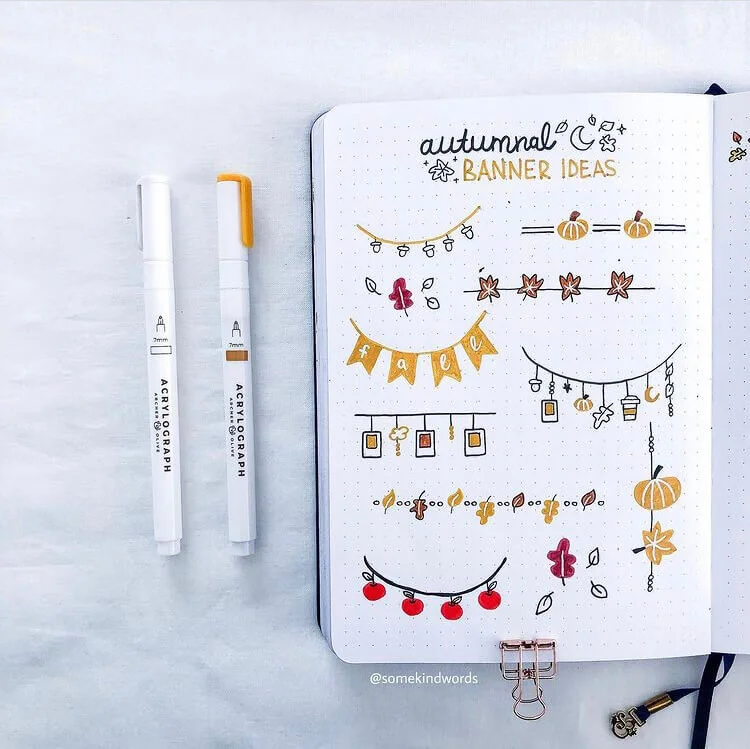 autumnal
BANNER IDEAS
fall
7mm
ACRYLOGRAPH
ARCHER & OLIVE
7mm
ACRYLOGRAPH
ARCHER & OLIVE
@somekindwords